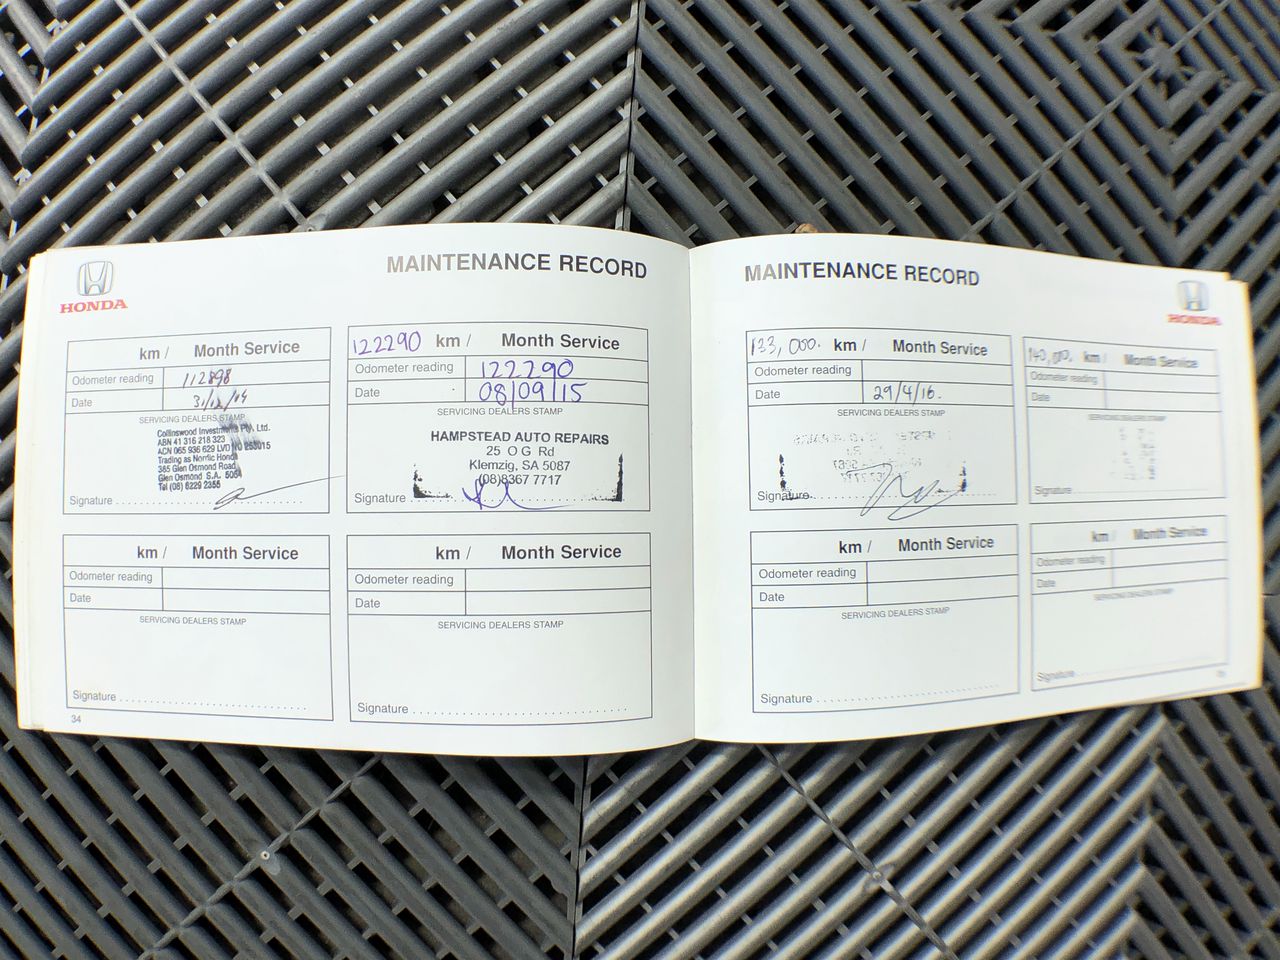 HONDA
MAINTENANCE RECORD
km / Month Service
Odometer reading 112898
Date
SERVICING DEALERS STAMP
Collinswood Investments Pty. Ltd.
ABN 41 316 218 323
ACN 065 936 629 LVD NO 253015
Trading as Nordic Honda
385 Glen Osmond Road
Glen Osmond S.A. 5064
Tel (08) 8229 2355
Signature
122290 km / Month Service
Odometer reading 122290
Date 08/09/15
SERVICING DEALERS STAMP
HAMPSTEAD AUTO REPAIRS
25 O G Rd
Klemzig, SA 5087
(08)8367 7717
Signature
km / Month Service
Odometer reading
Date
SERVICING DEALERS STAMP
Signature
km / Month Service
Odometer reading
Date
SERVICING DEALERS STAMP
Signature
34
MAINTENANCE RECORD
HONDA
133,000. km / Month Service
Odometer reading
Date 29/4/16.
SERVICING DEALERS STAMP
Signature
140,000. km / Month Service
Odometer reading
Date
SERVICING DEALERS STAMP
Signature
km / Month Service
Odometer reading
Date
SERVICING DEALERS STAMP
Signature
km / Month Service
Odometer reading
Date
SERVICING DEALERS STAMP
Signature